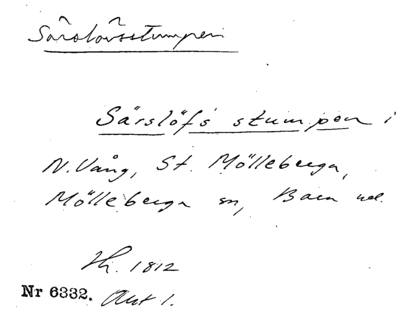 Särslövsstumpen
Särslöf's stumpen i
N. Vång, St. Mölleberga,
Mölleberga sn, Bara hd.
Hh. 1812
Nr 6332. Akt 1.